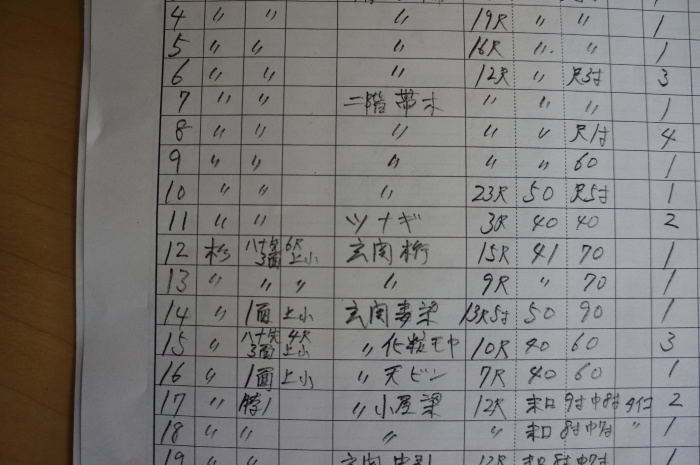 4 〃 〃 〃 19尺 〃 〃 1
5 〃 〃 〃 16尺 〃 〃 1
6 〃 〃 〃 12尺 〃 尺5寸 3
7 〃 〃 二階帯木 〃 〃 〃 1
8 〃 〃 〃 〃 〃 尺1寸 4
9 〃 〃 〃 〃 〃 60 1
10 〃 〃 〃 23尺 50 尺5寸 1
11 〃 〃 ツナギ 3尺 40 40 2
12 杉 6尺 3面 上小 玄関桁 15尺 41 70 1
13 〃 〃 〃 〃 9尺 〃 70 1
14 〃 1面 上小 玄関妻梁 13尺5寸 50 90 1
15 〃 4尺 3面 上小 〃 化粧モヤ 10尺 40 60 3
16 〃 1面 上小 〃 天ビン 7尺 40 60 1
17 〃 特1 〃 小屋梁 12尺 末口 9寸中8寸 タイコ 2
18 〃 〃 〃 〃 末口 8寸中7寸 〃 1
19 〃 〃 12尺 末口 8寸中7寸 1